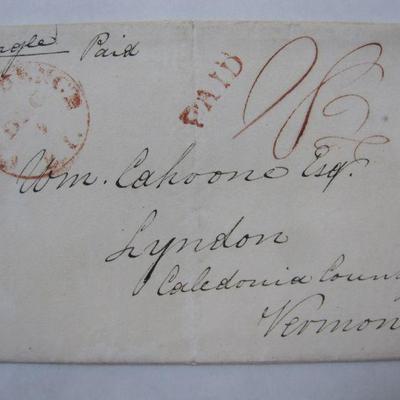 Paid
PAID
Wm. Cahoone Esqr.
Lyndon
Caledonia Coun
Vermon